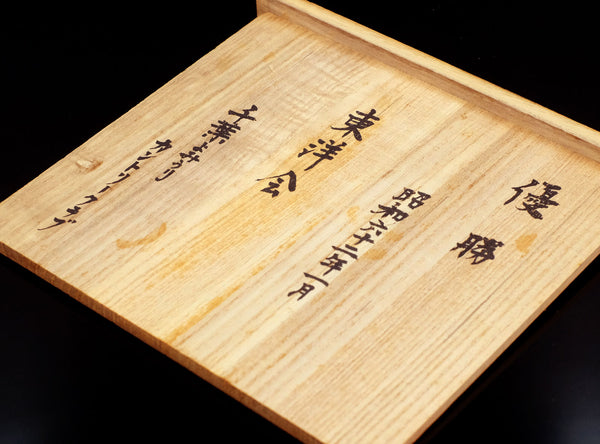 優勝
昭和六十二年一月
東洋会
千葉よみうり
カントリークラブ